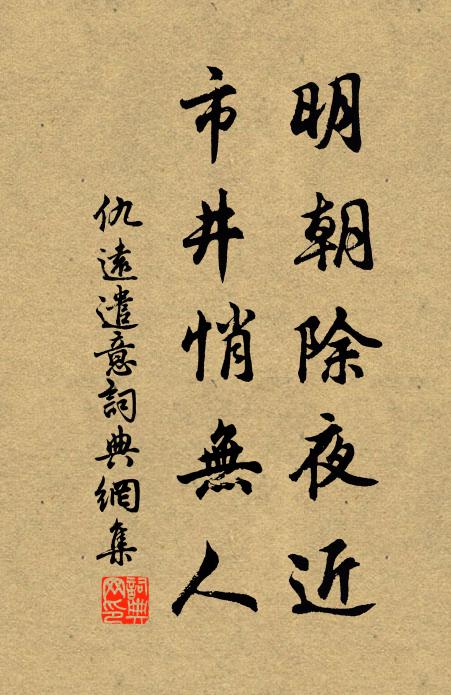 明朝除夜近
市井悄無人
仇遠遣意詞典網集
詞典網印